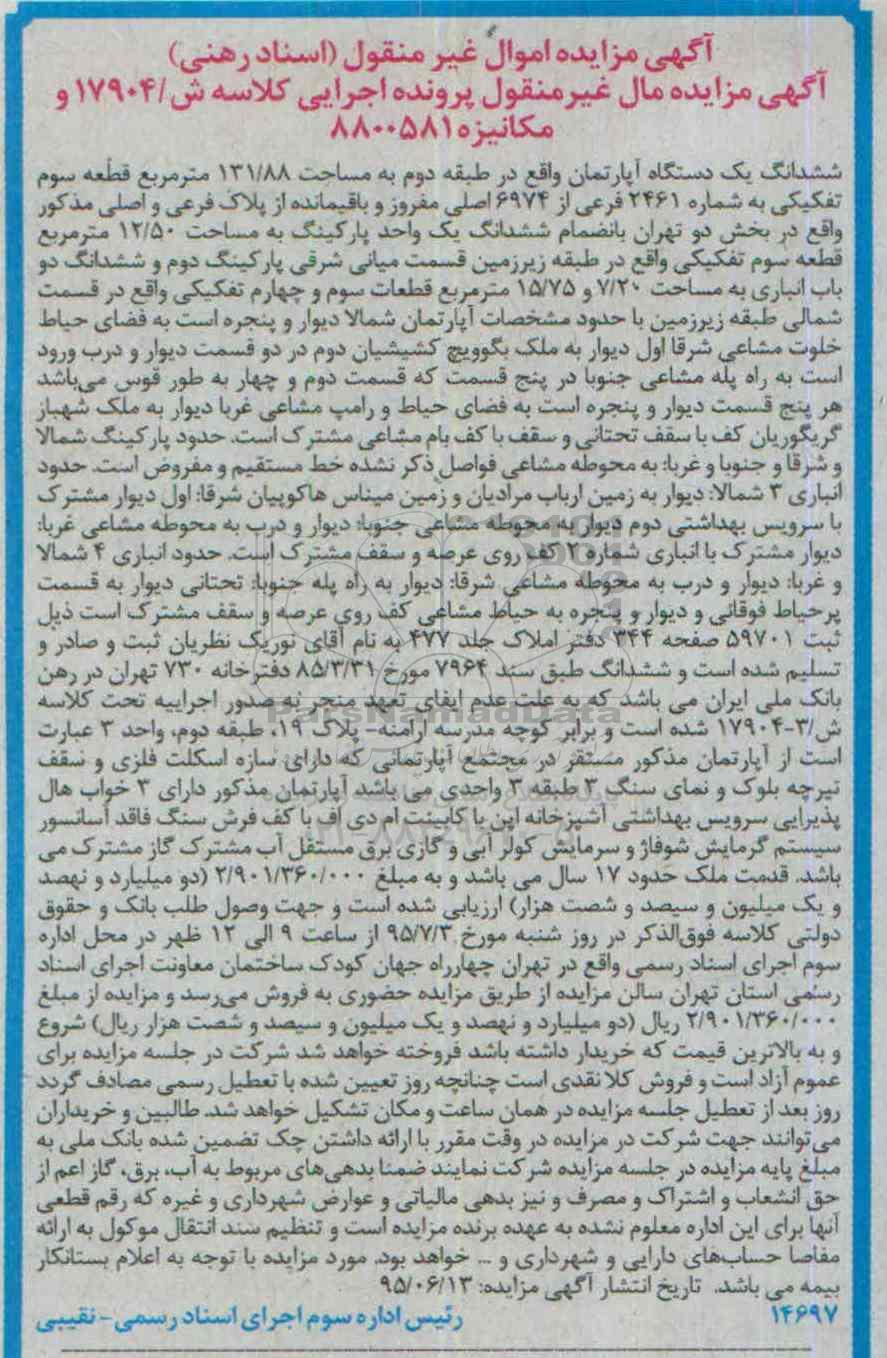 آگهی مزایده اموال غیر منقول (اسناد رهنی)
آگهی مزایده مال غیرمنقول پرونده اجرایی کلاسه ش/۱۷۹۰۴ و
مکانیزه ۸۸۰۰۵۸۱
ششدانگ یک دستگاه آپارتمان واقع در طبقه دوم به مساحت ۱۳۱/۸۸ مترمربع قطعه سوم
تفکیکی به شماره ۲۴۶۱ فرعی از ۶۹۷۴ اصلی مفروز و باقیمانده از پلاک فرعی و اصلی مذکور
واقع در بخش دو تهران بانضمام ششدانگ یک واحد پارکینگ به مساحت ۱۲/۵۰ مترمربع
قطعه سوم تفکیکی واقع در طبقه زیرزمین قسمت میانی شرقی پارکینگ دوم و ششدانگ دو
باب انباری به مساحت ۷/۲۰ و ۱۵/۷۵ مترمربع قطعات سوم و چهارم تفکیکی واقع در قسمت
شمالی طبقه زیرزمین با حدود مشخصات آپارتمان شمالا دیوار و پنجره است به فضای حیاط
خلوت مشاعی شرقا اول دیوار به ملک بگوویچ کشیشیان دوم در دو قسمت دیوار و درب ورود
است به راه پله مشاعی جنوبا در پنج قسمت که قسمت دوم و چهار به طور قوس می‌باشد
هر پنج قسمت دیوار و پنجره است به فضای حیاط و رامپ مشاعی غربا دیوار به ملک شهباز
گریگوریان کف با سقف تحتانی و سقف با کف بام مشاعی مشترک است. حدود پارکینگ شمالا
و شرقا و جنوبا و غربا: به محوطه مشاعی فواصل ذکر نشده خط مستقیم و مفروض است. حدود
انباری ۳ شمالا: دیوار به زمین ارباب مرادیان و زمین میناس هاکوپیان شرقا: اول دیوار مشترک
با سرویس بهداشتی دوم دیوار به محوطه مشاعی جنوبا: دیوار و درب به محوطه مشاعی غربا:
دیوار مشترک با انباری شماره ۲ کف روی عرصه و سقف مشترک است. حدود انباری ۴ شمالا
و غربا: دیوار و درب به محوطه مشاعی شرقا: دیوار به راه پله جنوبا: تحتانی دیوار به قسمت
پرحیاط فوقانی و دیوار و پنجره به حیاط مشاعی کف روی عرصه و سقف مشترک است ذیل
ثبت ۵۹۷۰۱ صفحه ۳۴۴ دفتر املاک جلد ۴۷۷ به نام آقای نوریک نظریان ثبت و صادر و
تسلیم شده است و ششدانگ طبق سند ۷۹۶۴ مورخ ۸۵/۳/۳۱ دفترخانه ۷۳۰ تهران در رهن
بانک ملی ایران می باشد که به علت عدم ایفای تعهد منجر به صدور اجراییه تحت کلاسه
ش/۳-۱۷۹۰۴ شده است و برابر کوچه مدرسه آرامنه- پلاک ۱۹، طبقه دوم، واحد ۳ عبارت
است از آپارتمان مذکور مستقر در مجتمع آپارتمانی که دارای سازه اسکلت فلزی و سقف
تیرچه بلوک و نمای سنگ ۳ طبقه ۳ واحدی می باشد آپارتمان مذکور دارای ۳ خواب هال
پذیرایی سرویس بهداشتی آشپزخانه اپن با کابینت ام دی اف با کف فرش سنگ فاقد آسانسور
سیستم گرمایش شوفاژ و سرمایش کولر آبی و گازی برق مستقل آب مشترک گاز مشترک می
باشد. قدمت ملک حدود ۱۷ سال می باشد و به مبلغ ۲/۹۰۱/۳۶۰/۰۰۰ (دو میلیارد و نهصد
و یک میلیون و سیصد و شصت هزار) ارزیابی شده است و جهت وصول طلب بانک و حقوق
دولتی کلاسه فوق‌الذکر در روز شنبه مورخ ۹۵/۷/۳ از ساعت ۹ الی ۱۲ ظهر در محل اداره
سوم اجرای اسناد رسمی واقع در تهران چهارراه جهان کودک ساختمان معاونت اجرای اسناد
رسمی استان تهران سالن مزایده از طریق مزایده حضوری به فروش می‌رسد و مزایده از مبلغ
۲/۹۰۱/۳۶۰/۰۰۰ ریال (دو میلیارد و نهصد و یک میلیون و سیصد و شصت هزار ریال) شروع
و به بالاترین قیمت که خریدار داشته باشد فروخته خواهد شد شرکت در جلسه مزایده برای
عموم آزاد است و فروش کلا نقدی است چنانچه روز تعیین شده با تعطیل رسمی مصادف گردد
روز بعد از تعطیل جلسه مزایده در همان ساعت و مکان تشکیل خواهد شد. طالبین و خریداران
می‌توانند جهت شرکت در مزایده در وقت مقرر با ارائه داشتن چک تضمین شده بانک ملی به
مبلغ پایه مزایده در جلسه مزایده شرکت نمایند ضمنا بدهی‌های مربوط به آب، برق، گاز اعم از
حق انشعاب و اشتراک و مصرف و نیز بدهی مالیاتی و عوارض شهرداری و غیره که رقم قطعی
آنها برای این اداره معلوم نشده به عهده برنده مزایده است و تنظیم سند انتقال موکول به ارائه
مفاصا حساب‌های دارایی و شهرداری و ... خواهد بود. مورد مزایده با توجه به اعلام بستانکار
بیمه می باشد. تاریخ انتشار آگهی مزایده: ۹۵/۰۶/۱۳
۱۴۶۹۷ رئیس اداره سوم اجرای اسناد رسمی - نقیبی
ParsNamadData